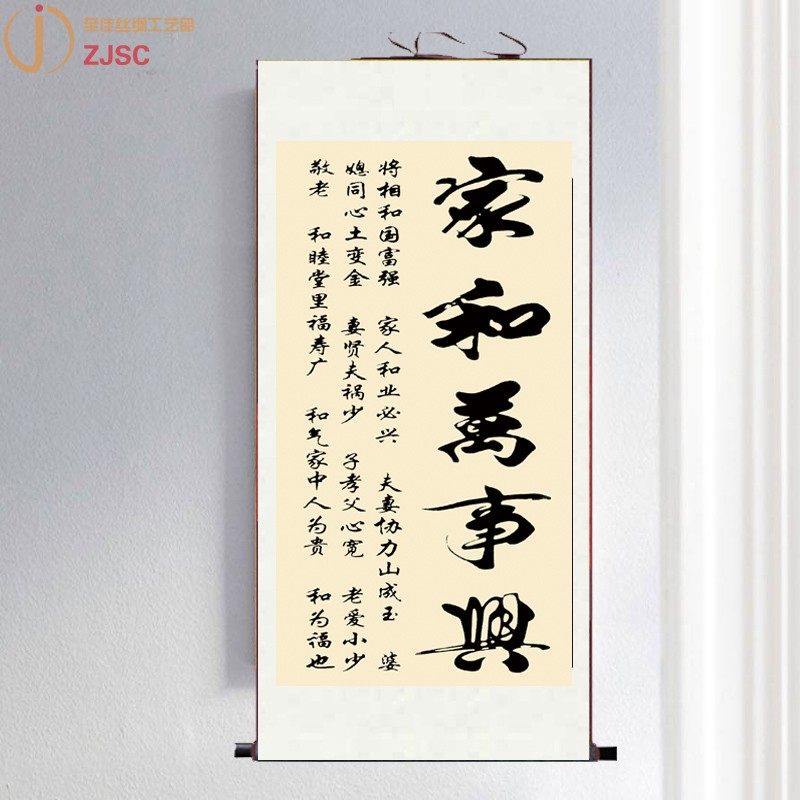 至佳丝绸工艺品
ZJSC
家和萬事興
将相和国富强 家人和业必兴 夫妻协力山成玉 婆
媳同心土变金 妻贤夫祸少 子孝父心宽 老爱小少
敬老 和睦堂里福寿广 和气家中人为贵 和为福也